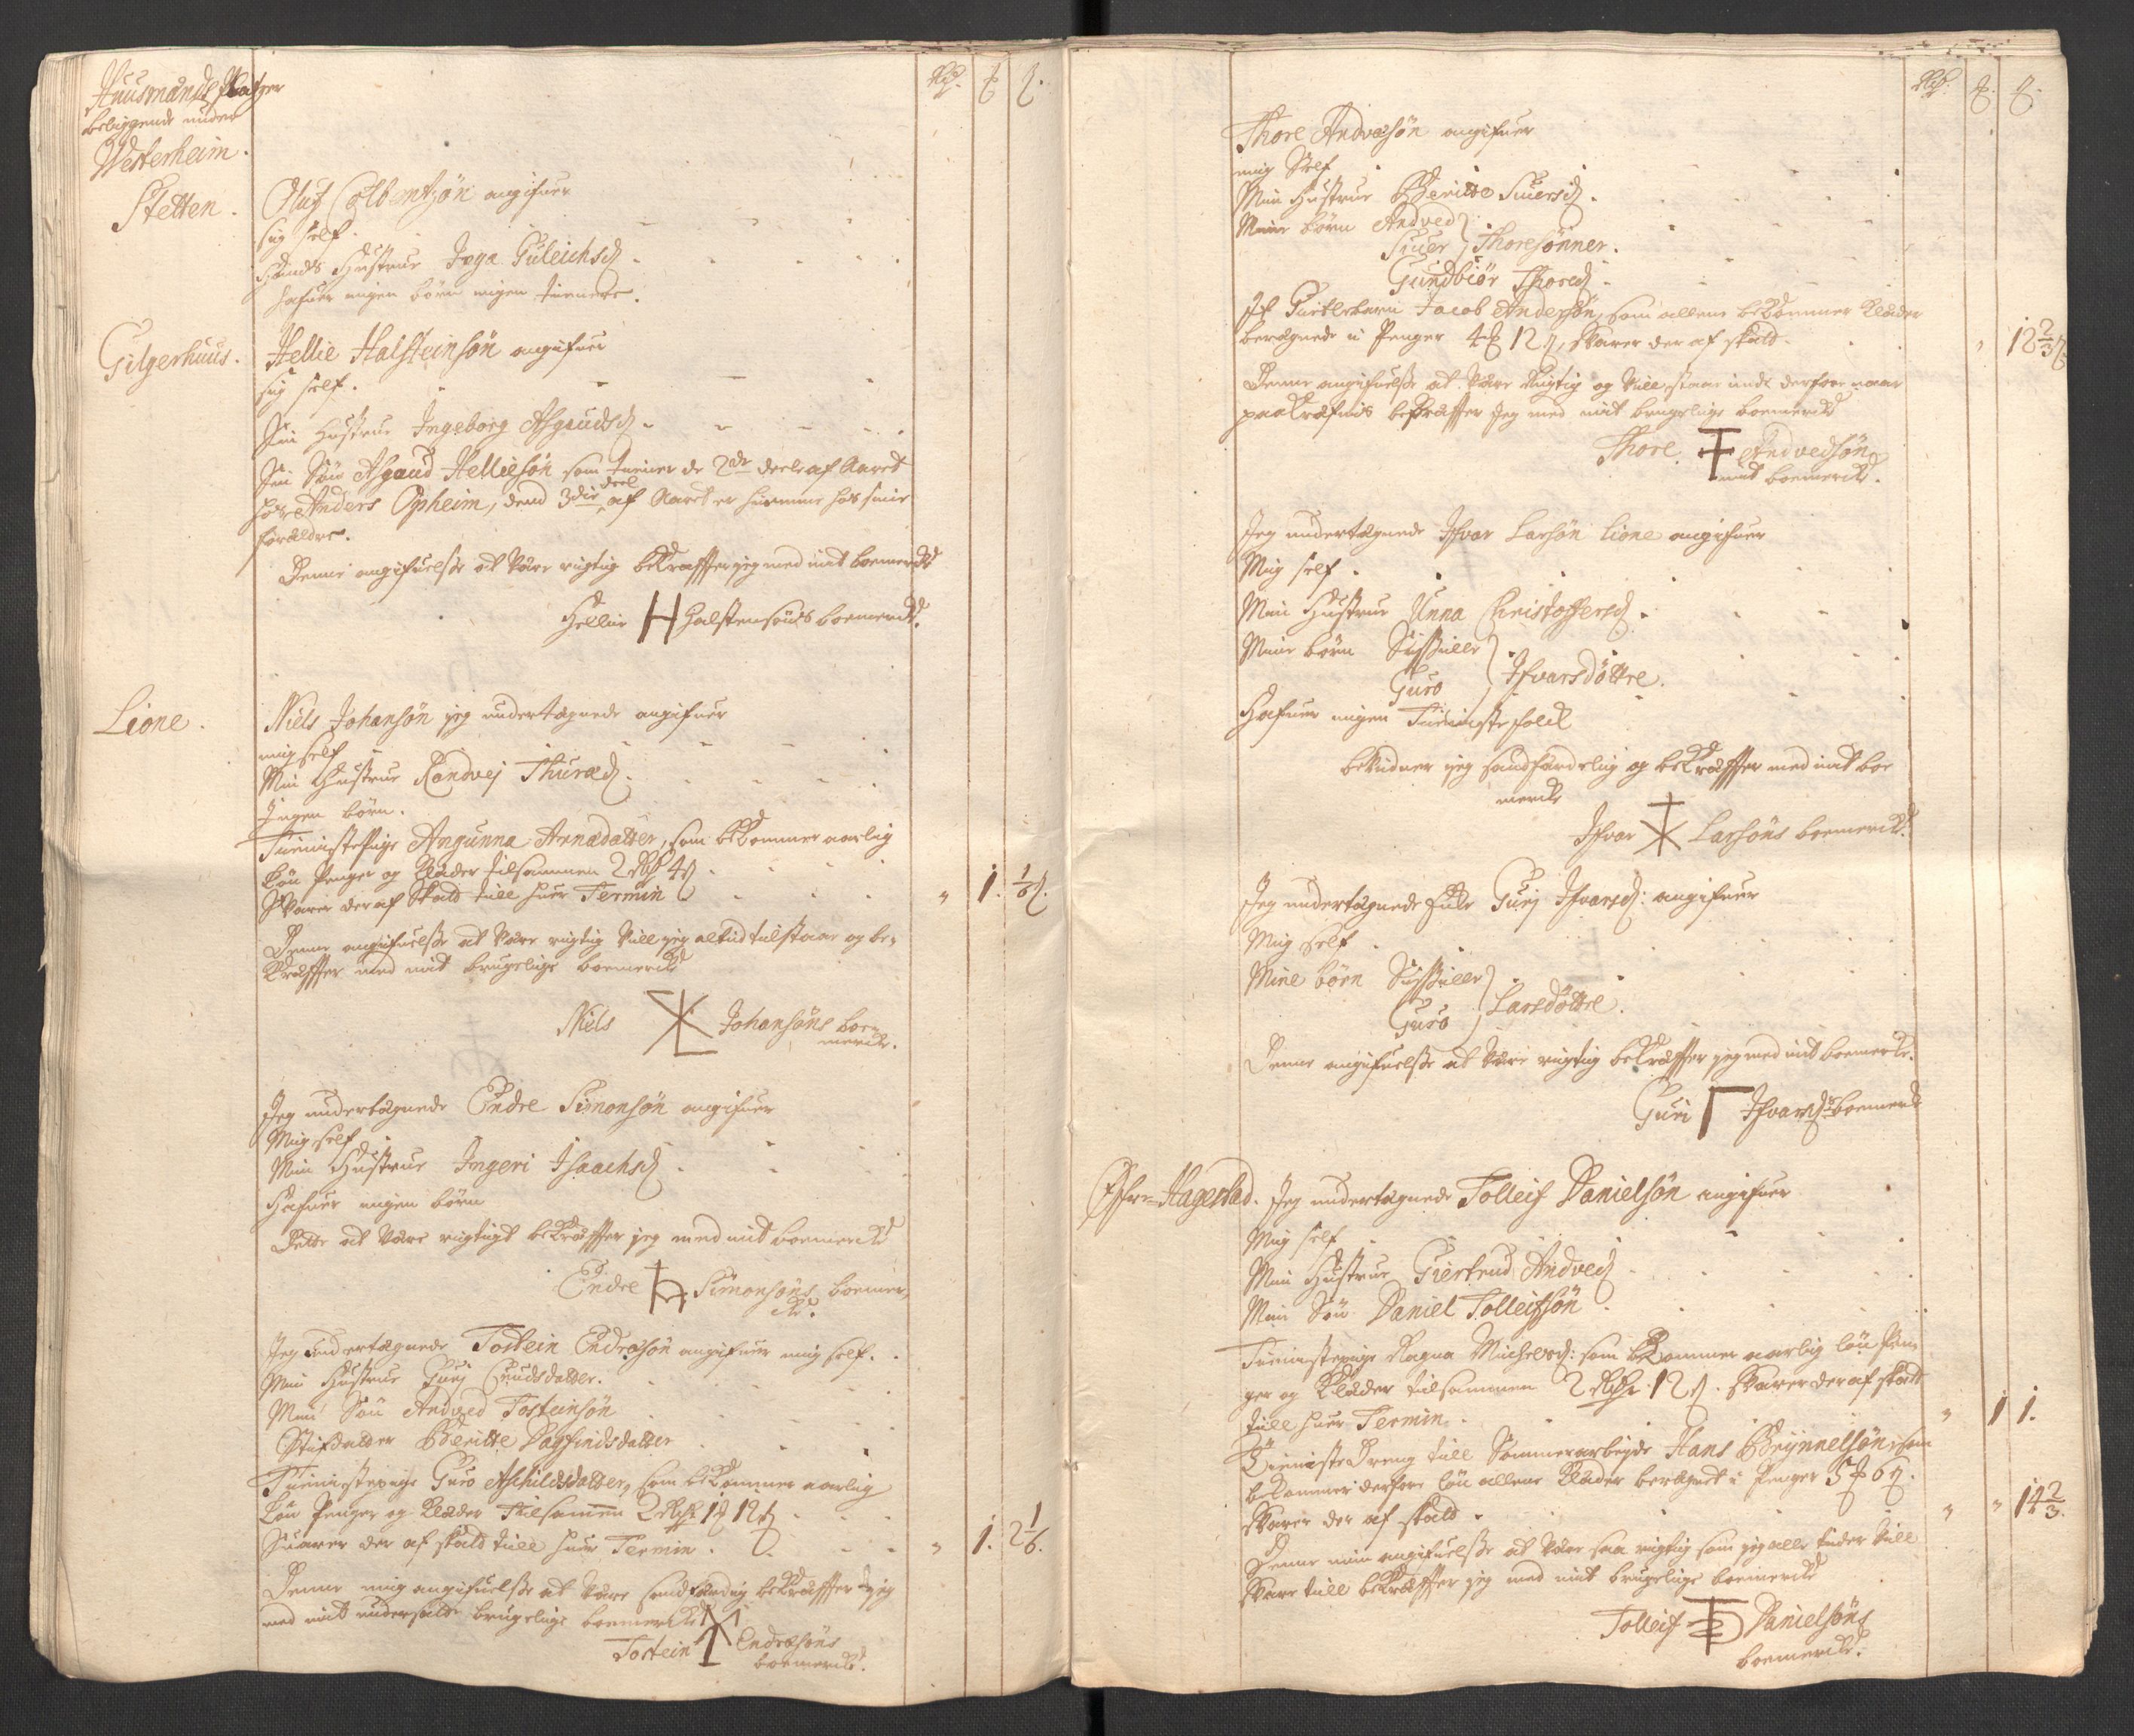 Huusmands Pladser
beliggende under
Westerheim.
Rdr. ℔ ß.
Stetten.
Oluf Colbentsøn angifuer
sig self.
Hands Hustrue Inga Guleichsd.
hafuer ingen børn ingen tienere.
Gilgerhuus.
Hellie Halsteinsøn angifuer
sig self.
Sin Hustrue Ingeborg Asgaudsd.
Sin Søn Asgaud Helliesøn som tiener de 2de deele af Aaret
hos Anders Opheim, dend 3die deel af Aaret er hiemme hos sine
forældre.
Denne angifuelsse at være rigtig bekræffter jeg med mit boemerke
Hellie H Halstensøns boemerke.
Lione.
Niels Johansøn jeg undertegnede angifuer
mig self
Min Hustrue Randvej Thurad.
Ingen børn.
Tienistepige Angunna Arnadatter, som bekommer aarlig
Løn Penger og Klæder tilsammen 2 Rdr 4 ß
Svarer der af Skatt till huer Termin " 1. 1/6 ß.
Denne angifuelsse at være rigtig vill jeg altid tilstaae og be-
kræffter med mit brugelige boemerke
Niels Johansøns boe-
merke.
Jeg undertegnede Endre Simonsøn angifuer
Mig self
Min Hustrue Ingeri Isaachsd.
Hafuer ingen børn
Dette at være rigtigt bekræffter jeg med mit boemerke
Endre Simonsøns boemer-
ke.
Jeg undertegnede Tostein Endresøn angifuer mig self.
Min Hustrue Gurj Cnudsdatter.
Min Søn Andved Tosteinsøn
Stifdatter Beritte Dagfindsdatter
Tienistepige Guro Aschildsdatter, som bekommer aarlig
Løn Penger og Klæder Tilsammen 2 Rdr 1 ℔ 12 ß
Suarer der af skatt till huer Termin. " 1. 2 1/6.
Denne mig angifuelsse at være sandfærdig bekræffter jeg
med mit undersatte brugelige boemerke
Tostein Endresøns
boemerke.
Rdr. ℔. ß.
Thore Andvedsøn angifuer
mig Self
Min Hustrue Beritte Siuersd.
Mine børn Andved
Siuer } Thoresønner.
Gundbiør Thored.
It Gietlebarn Jacob Andersøn, som allene bekommer Klæder
beregnede i Penger 4 ℔ 12 ß, Svarer der af skatt. " 18 2/3 ß.
Denne angifuelsse at være rigtig og vill staae inde derfore naar
paakræfves bekræffter jeg med mit brugelige boemerke
Thore Andvedsøn
mit boemerke.
Jeg undertegnede Ifvar Larsøn Lione angifuer
Mig self.
Min Hustrue Unna Christophersd.
Mine børn Sissille
Guro } Ifvarsdøttre.
Hafuer ingen Tienistefolck
bevidner jeg sandfærdelig og bekræffter med mit boe
merke
Ifvar Larsøns boemerke.
Jeg undertegnede Enke Gurj Ifvarsd: angifuer
Mig self
Mine børn Sissille
Guro } Larsdøttre.
Denne angifuelsse at være rigtig bekræffter jeg med mit boemerke.
Guri Γ Ifvarsd. boemerke
Øfre-Hagestad.
Jeg undertegnede Tolleif Danielsøn angifuer
Mig self
Min Hustrue Giertrud Andved.
Min Søn Daniel Tolleifsøn
Tienistepige Ragna Michelsd: som bekommer aarlig løn Pen-
ger og Klæder tilsammen 2 Rdr: 12 ß. Svarer der af skatt
till huer Termin. " 1 1.
Tieniste Dreng till Sommerarbeyde Hans Brynnelsøn, som
bekommer derfore løn allene Klæder beregnet i Penger 5 ℔ 6 ß.
Svarer der af skatt. " " 14 2/3.
Denne min angifuelsse at være saa rigtig som jeg alle tider vill
Svare till bekræffter jeg med mit brugelige boemerke
Tolleif Danielsøns
boemerke.